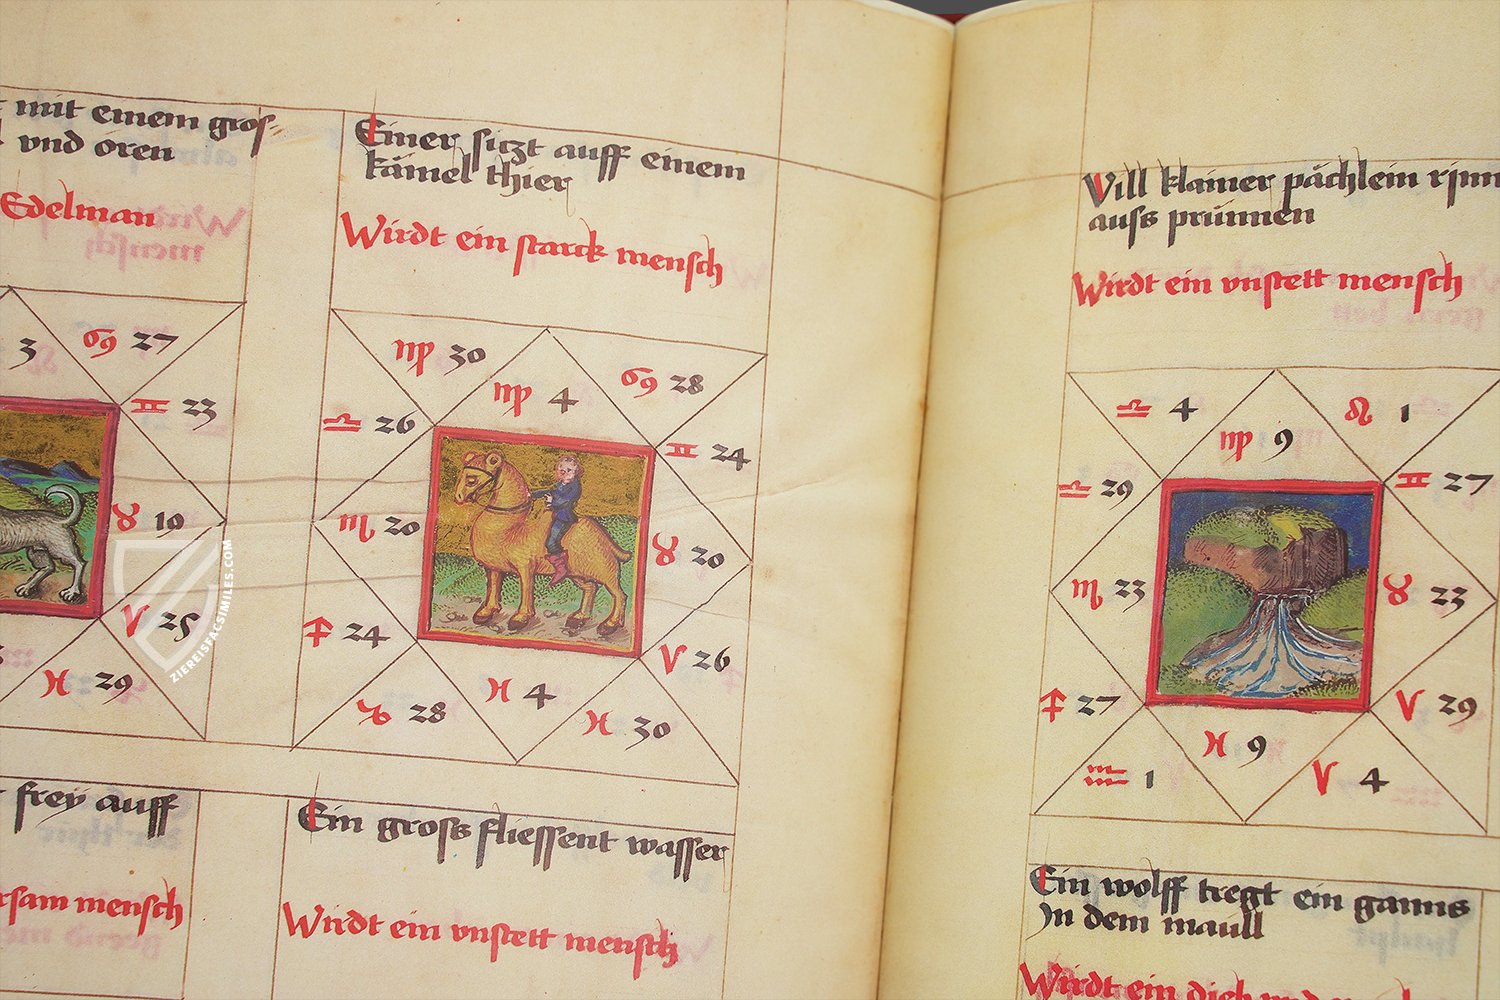 mit einem gros-
vnd oren
Edelman
3
♋ 27
♊ 23
♉ 19
♈ 25
♓ 29
Einer sitzt auff einem
kämel thier
Wirdt ein starck mensch
♍ 30
♍ 4
♋ 28
♎ 26
♊ 24
♏ 20
♉ 20
♐ 24
♈ 26
♑ 28
♓ 4
♓ 30
frey auff
rsam mensch
Ein gross fliessent wasser
Wirdt ein vnstett mensch
Vill klainer pächlein rinn
auss prünnen
Wirdt ein vnstett mensch
♎ 4
♍ 9
♌ 1
♎ 29
♊ 27
♏ 23
♉ 23
♐ 27
♈ 29
♒ 1
♓ 9
♈ 4
Ein wolff tregt ein ganns
Jn dem maull
Wirdt ein dieb vnd
ZIEREISFACSIMILES.COM